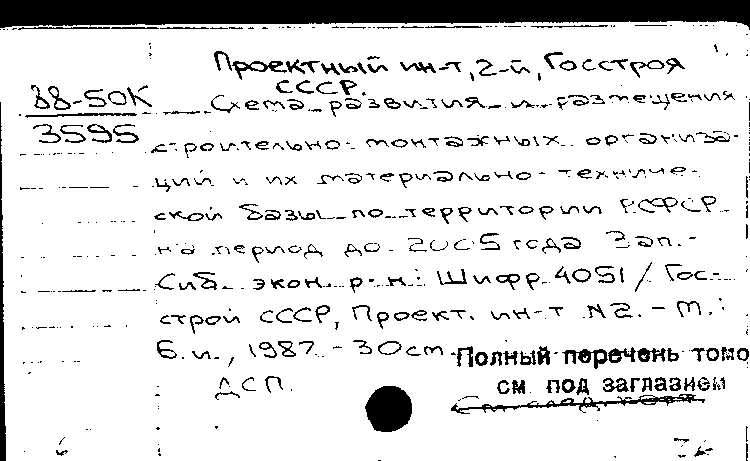 Проектный ин-т, 2-й, Госстроя
СССР.
88-50К
3595
Схема развития и размещения
строительно-монтажных организа-
ций и их материально-техниче-
ской базы по территории РСФСР
на период до 2005 года Зап.-
Сиб. экон. р-н: Шифр 4051 / Гос-
строй СССР, Проект. ин-т №2. - М.:
Б.и., 1987. - 30см.
Полный перечень томо
см под заглавием
ДСП.